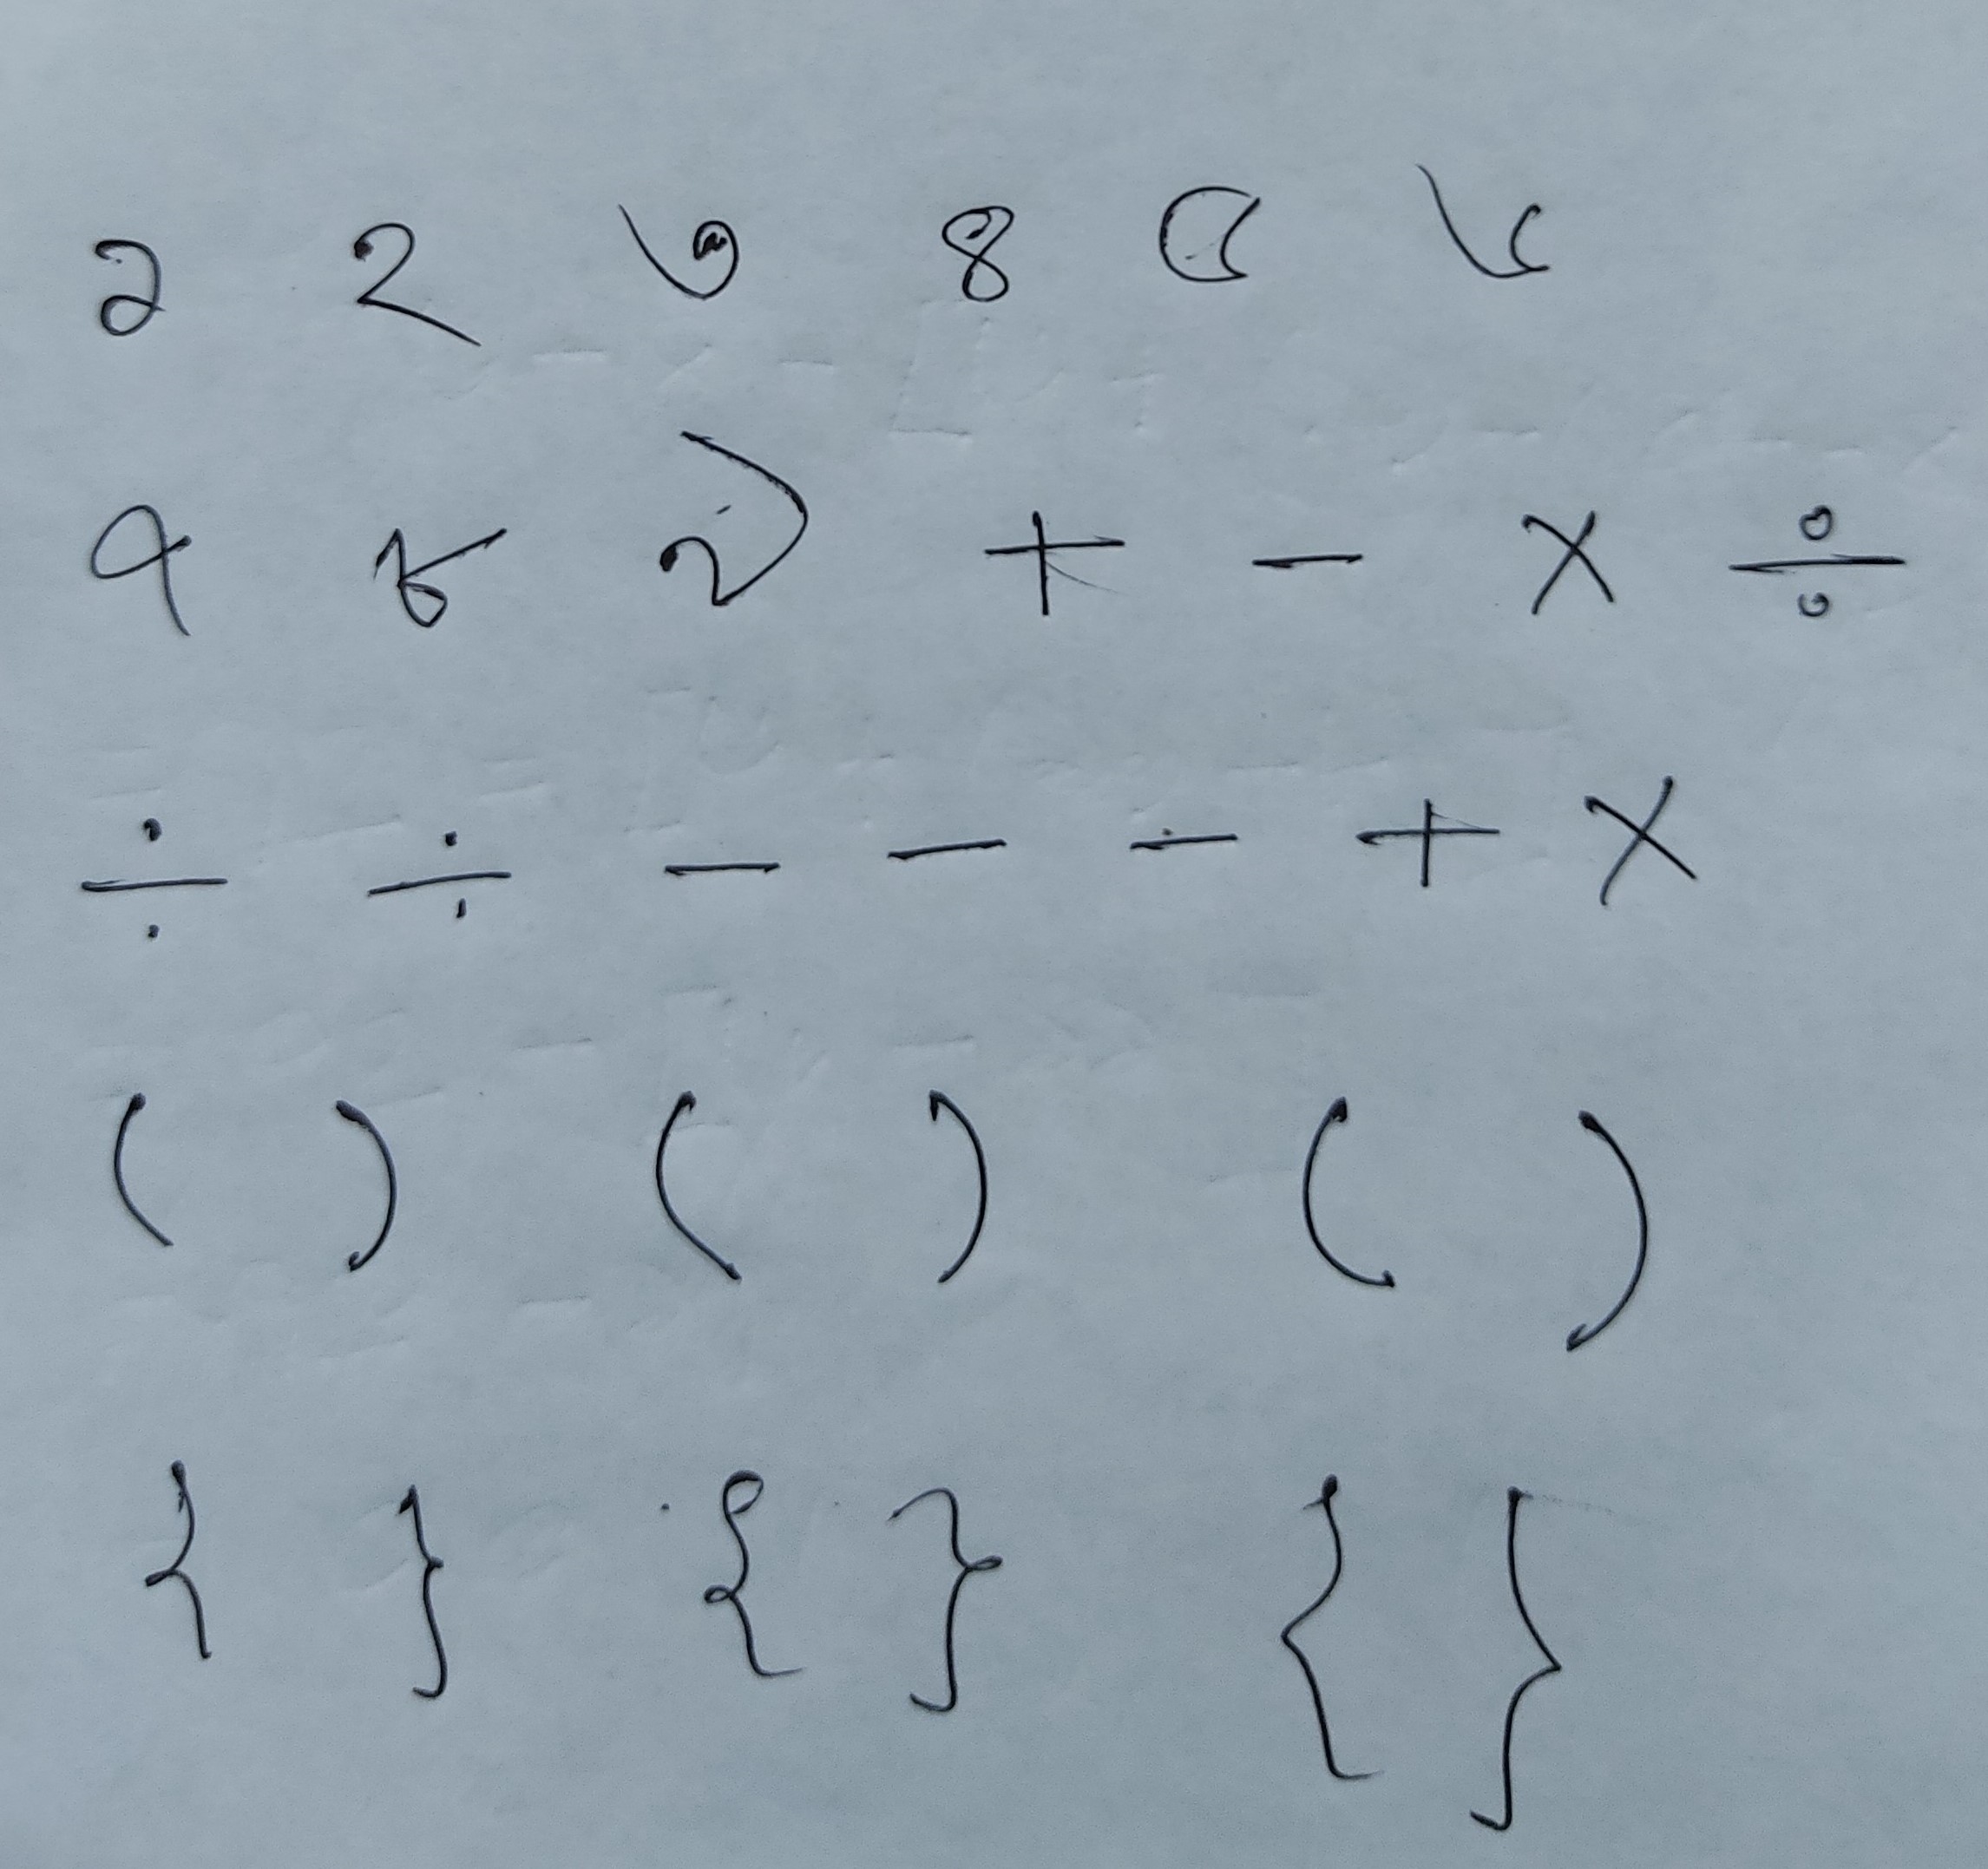 ১ ২ ৩ ৪ ৫ ৬
৭ ৮ ৯ + - × ÷
÷ ÷ - - - + ×
( ) ( ) ( )
{ } { } { }